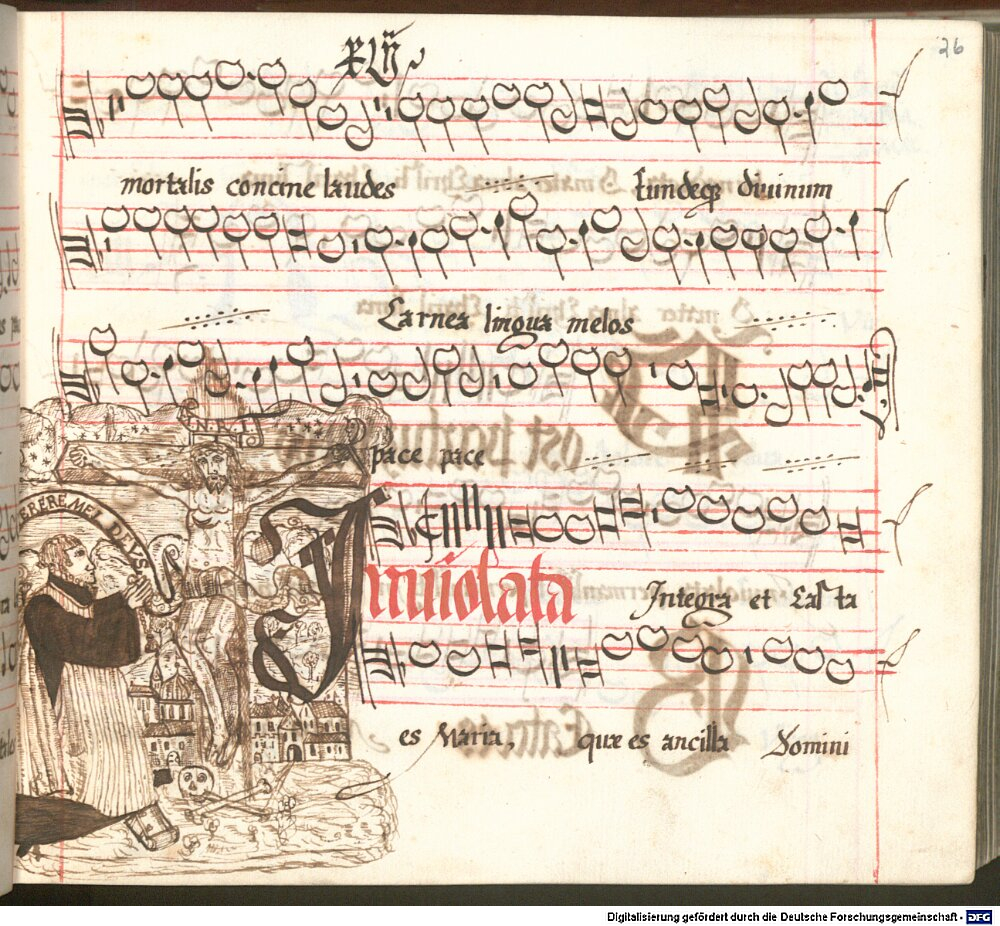 26
mortalis concine laudes fundeqꝫ diuinum
Carnea lingua melos
pace pace
I.N.R.I
MISERERE MEI DEVS
Inuiolata Integra et Casta
es Maria, quæ es ancilla Domini
Digitalisierung gefördert durch die Deutsche Forschungsgemeinschaft - DFG